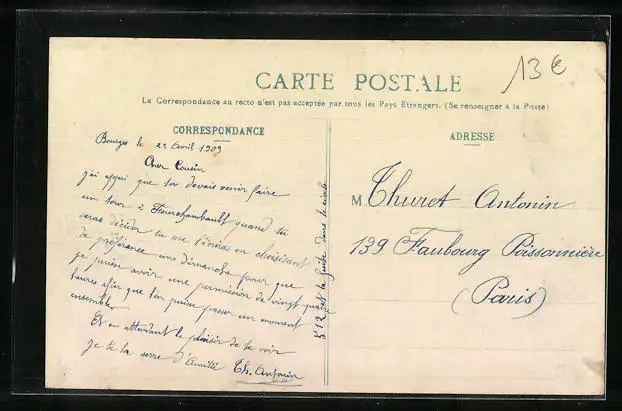 13€
CARTE POSTALE
La Correspondance au recto n'est pas acceptée par tous les Pays Etrangers. (Se renseigner à la Poste)
CORRESPONDANCE
Bourges le 25 Avril 1909
Cher Cousin
j'ai appri que tu devais venir faire
un tour à Fourchambault quand tu
seras décider tu me l'écriras en choisissant
de préférance une dimanche pour que
je puisse avoir une permission de vingt quatre
heures afin que l'on puisse passer un moment
ensemble.
Et en attendant le plaisir de te voir
je te la serre d'Amitié Th. Antonin
512 est la juste dans le cercle
ADRESSE
M Thuret Antonin
139 Faubourg Poissonnière
(Paris)